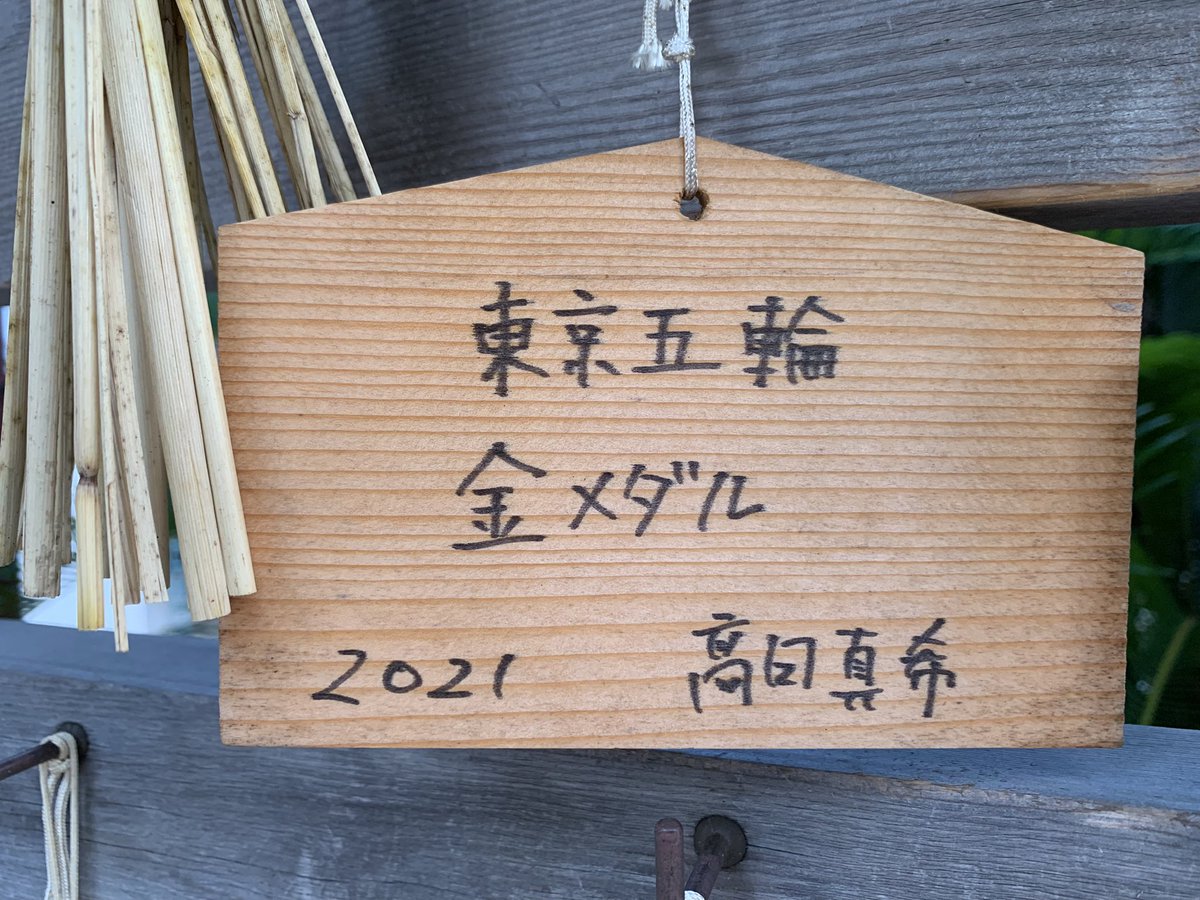 東京五輪
金メダル
2021 高田真希